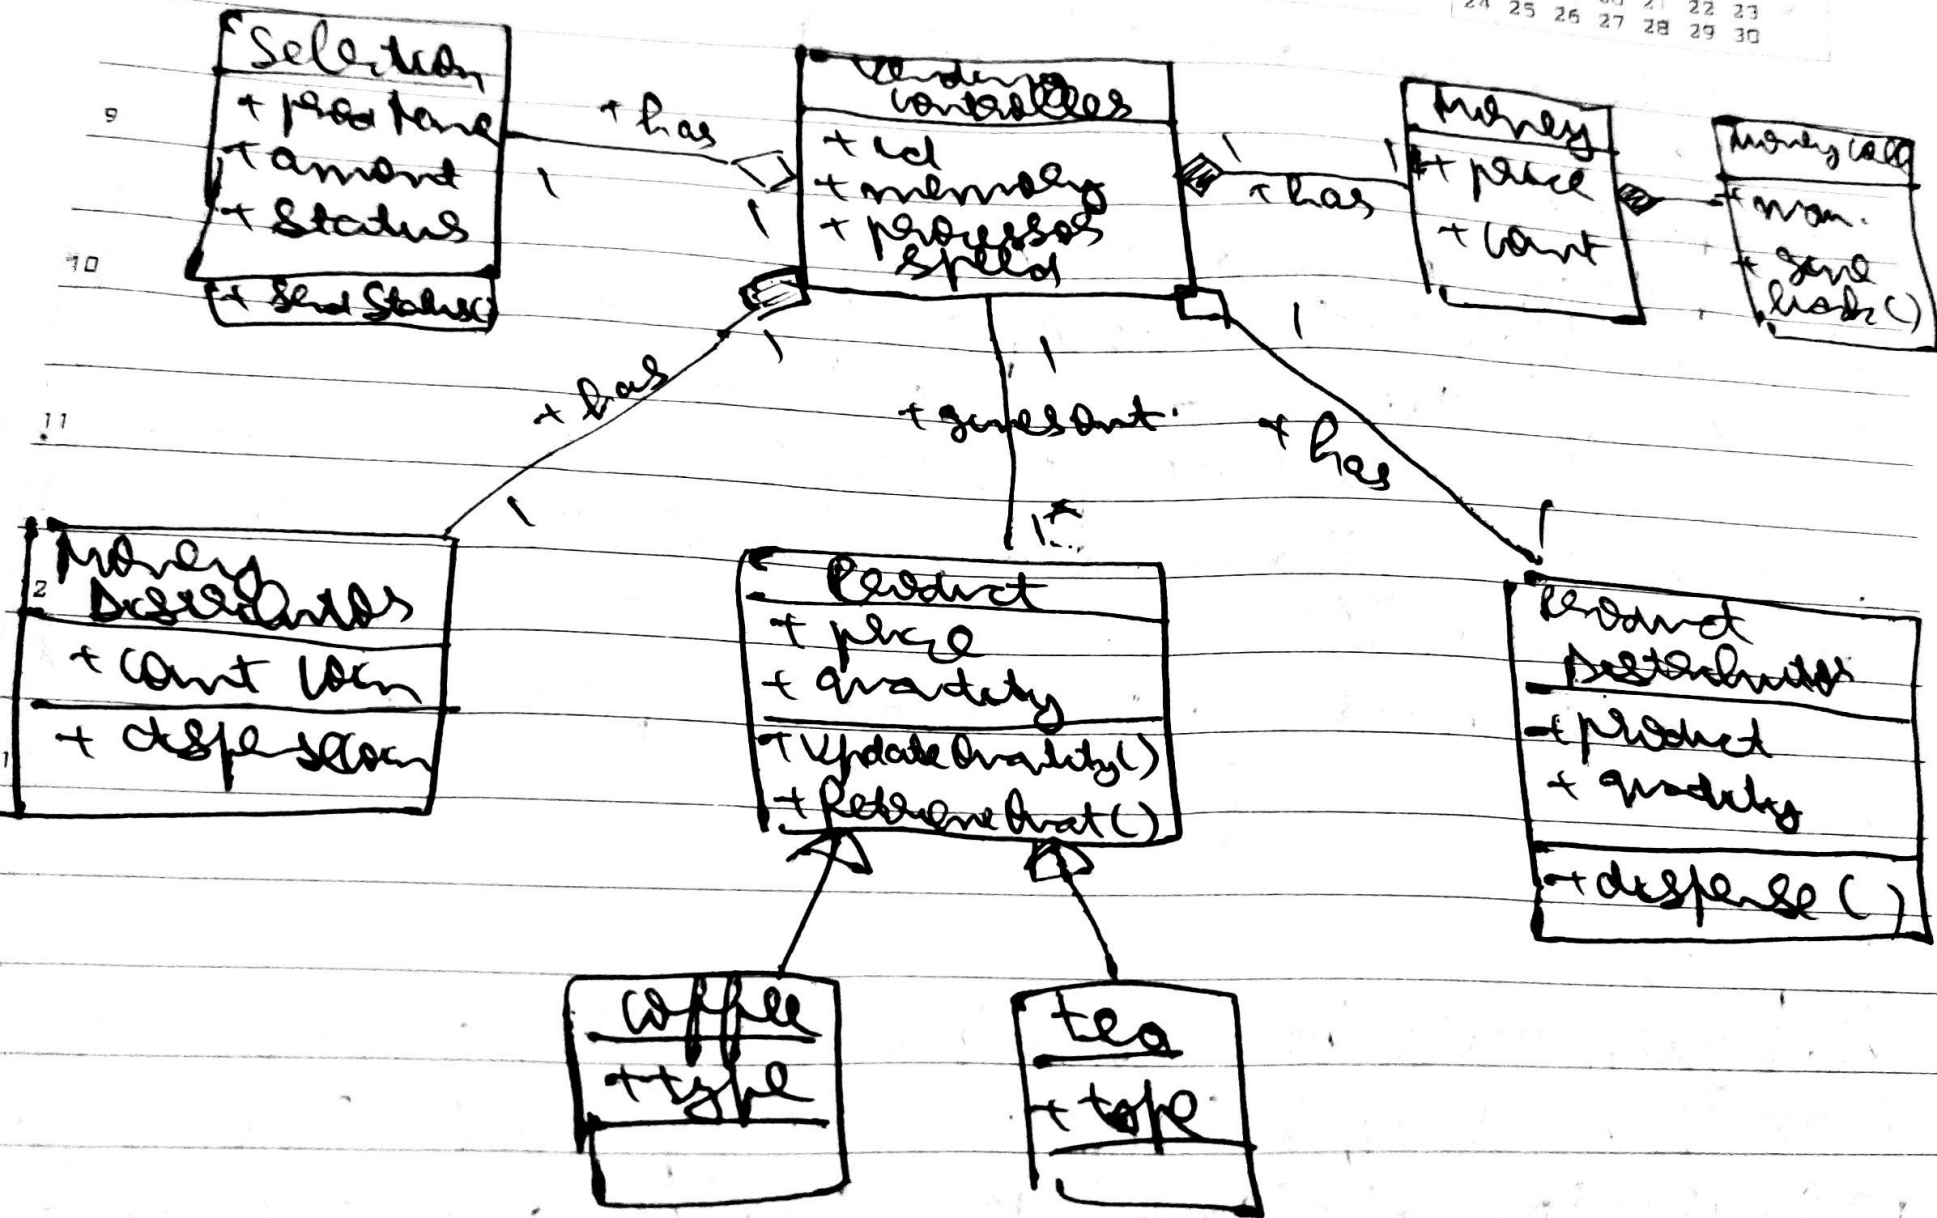 21 22 23
24 25 26 27 28 29 30
9
10
11
2
1
Selection
+ prod name
+ amont
+ Status
+ Send Status()
+ has
1
1
Vending
Controller
+ id
+ memory
+ processor
speed
1
1
+ has
Money
+ price
+ count
Money Coll
+ man.
+ give
back()
+ has
1
1
1
+ givesOut
1..*
1
+ has
1
Money
Distributor
+ Count Coin
+ dispenseCoin
Product
+ price
+ quantity
+ UpdateQuantity()
+ RetrieveQuat()
Product
Distributor
+ product
+ quantity
+ dispense()
coffee
+ type
tea
+ type